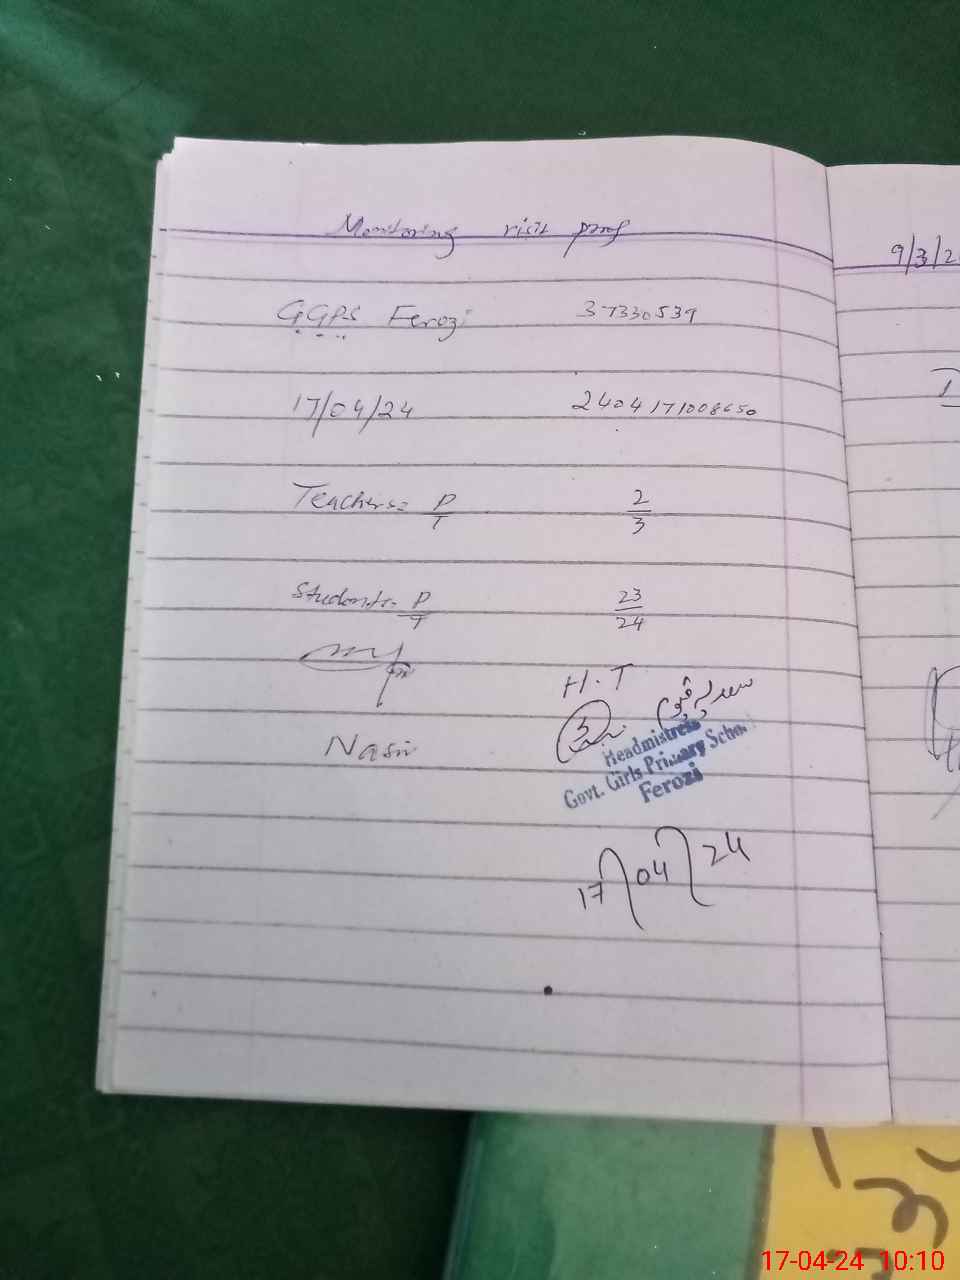 Monitoring visit proof
GGPS Ferozi 37330539
17/04/24 2404171008650
Teachers= P/T 2/3
Students= P/T 23/24
H.T
Nasir
Headmistress
Govt. Girls Primary School
Ferozi
17/04/24
9/3/2
17-04-24 10:10